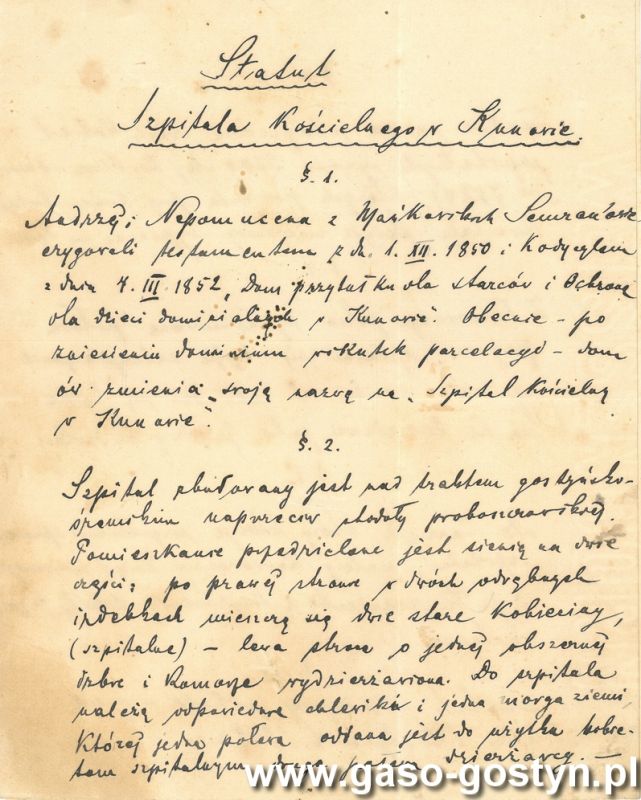 Statut
Szpitala Kościelnego w Kunowie.
§. 1.
Andrzej i Nepomucena z Mańkowskich
erygowali testamentem z dn. 1. XII. 1850 i Kodycylem
z dnia 4. III. 1852 „Dom przytułku dla starców i Ochronę
dla dzieci dominialnych w Kunowie". Obecnie – po
zniesieniu dominium wskutek parcelacyi – dom
ów zmienia swoją nazwę na „Szpital Kościelny
w Kunowie".
§. 2.
Szpital zbudowany jest nad traktem gostyńsko-
śremskim naprzeciw stodoły proboszczowskiej.
Pomieszkanie przedzielone jest sienią na dwie
części; po prawej stronie w dwóch odrębnych
izdebkach mieszczą się dwie stare kobieciny,
(szpitalne) – lewa strona o jednej obszernej
izbie i komorze wydzierżawiona. Do szpitala
należą odpowiednie chlewiki i jedna morga ziemi,
której jedna połowa oddana jest do użytku kobie-
tom szpitalnym, druga dzierżawcy. –
www.gaso-gostyn.pl